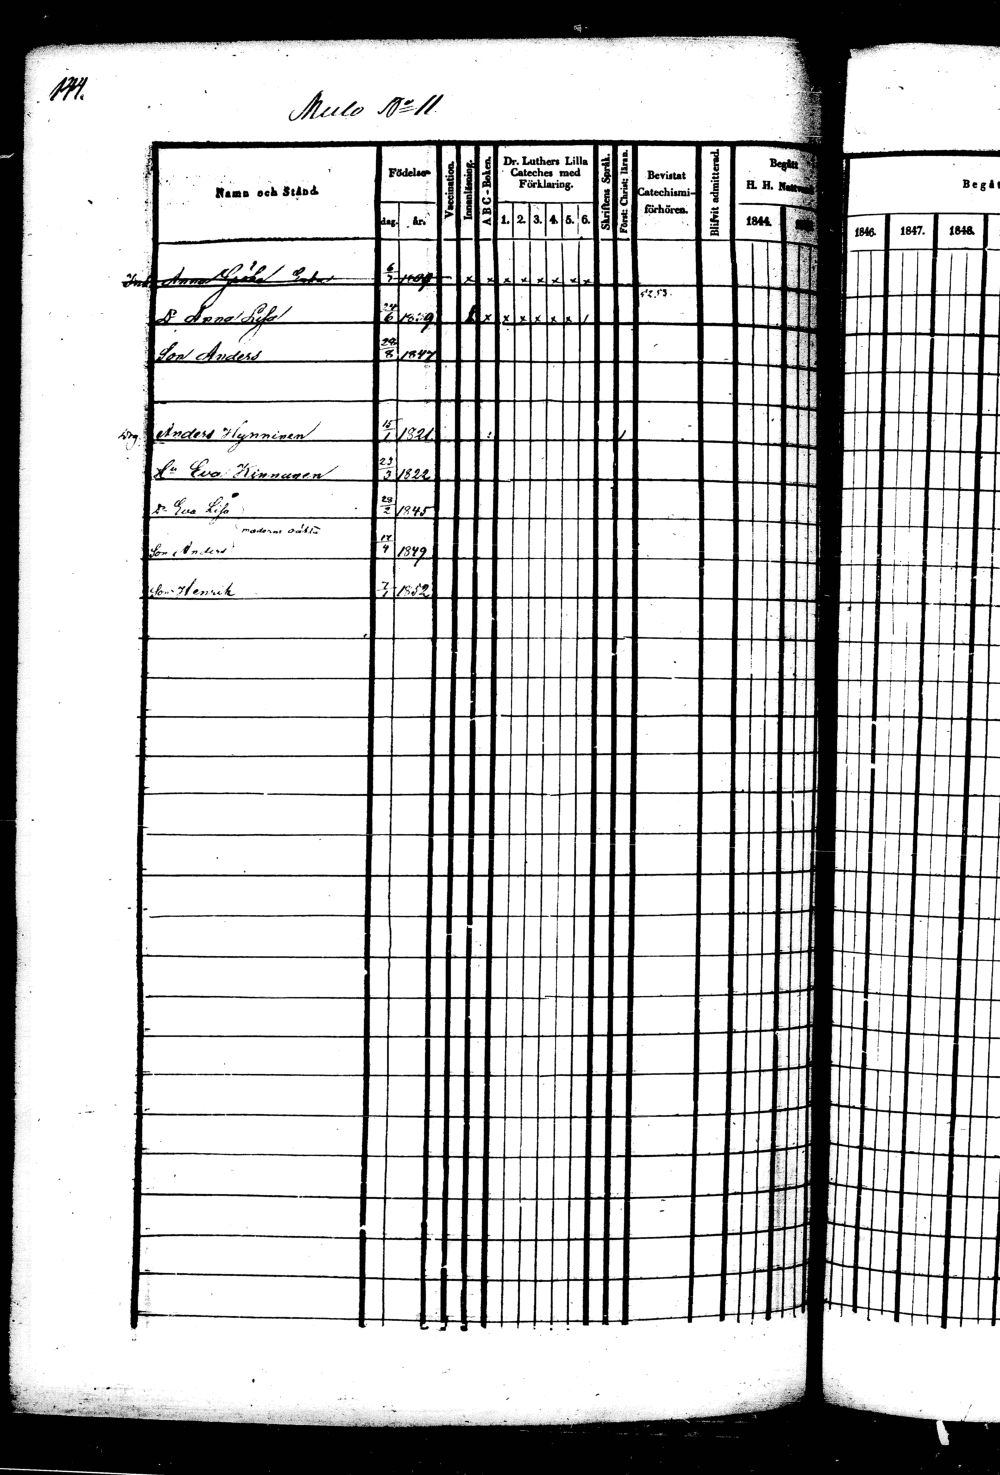 144.
Mulo No 11
Namn och Stånd.
Födelse-
dag. år.
Vaccination.
Innanläsning.
A B C - Boken.
Dr. Luthers Lilla
Cateches med
Förklaring.
1. 2. 3. 4. 5. 6.
Skriftens Språk.
Först: Christ: läran.
Bevistat
Catechismi-
förhören.
Blifvit admitterad.
Begått
H. H. Nattvard
1844.
Begåt
1846. 1847. 1848.
Anna 6/7
52.53.
Dr Anna Lisa 24/6 x x x x x x
Son Anders 29/8 1847
Anders Hynninen 15/1 1821
Hu Eva Kinnunen 23/3 1822
Dr Eva Lisa 28/2 1845
moderns oäkta
Son Anders 17/4 1849
Son Henrik 7/1 1852